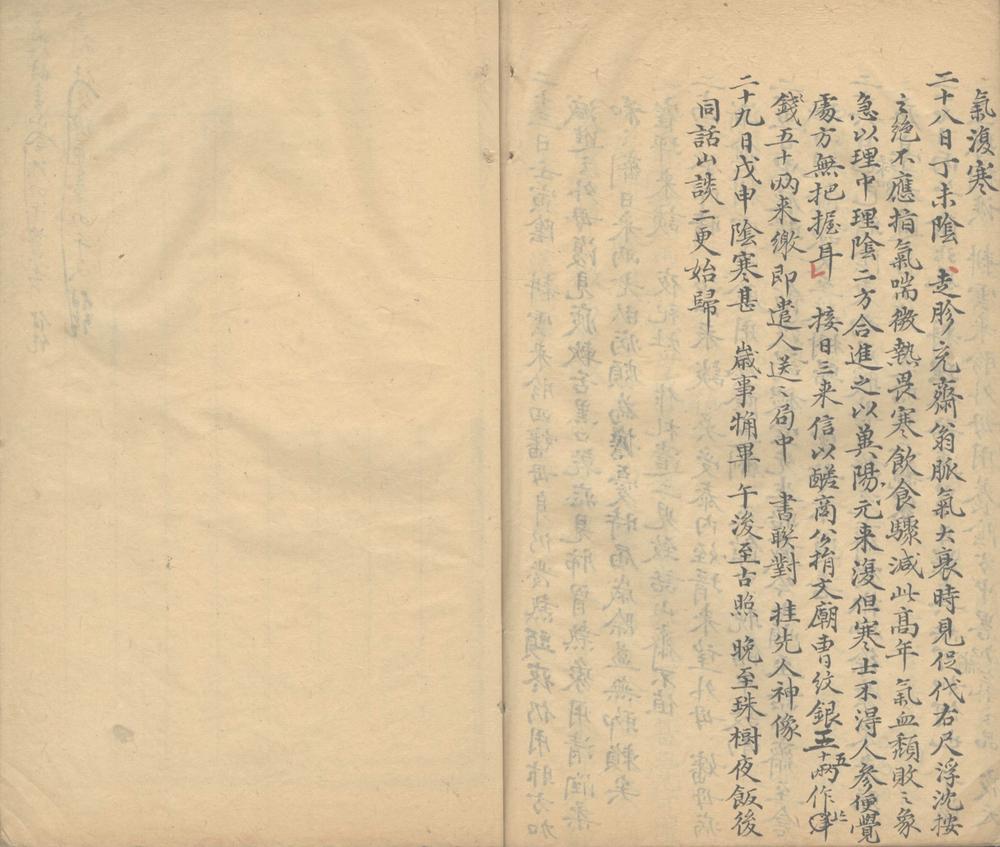 氣復寒
二十八日丁未陰 走胗元齋翁脈氣大衰時見促代右尺浮沈按
之絕不應指氣喘微熱畏寒飲食驟減此高年氣血頹敗之象
急以理中理陰二方合進之以兾陽元来復但寒士不得人參便覺
處方無把握耳 接日三来信以鹺商公捐文廟曹紋銀五十兩作
錢五十兩来繳即遣人送之局中 書聯對 挂先人神像
二十九日戊申陰寒甚 歲事犕畢 午後至古照 晚至珠樹夜飯後
同話山談二更始歸